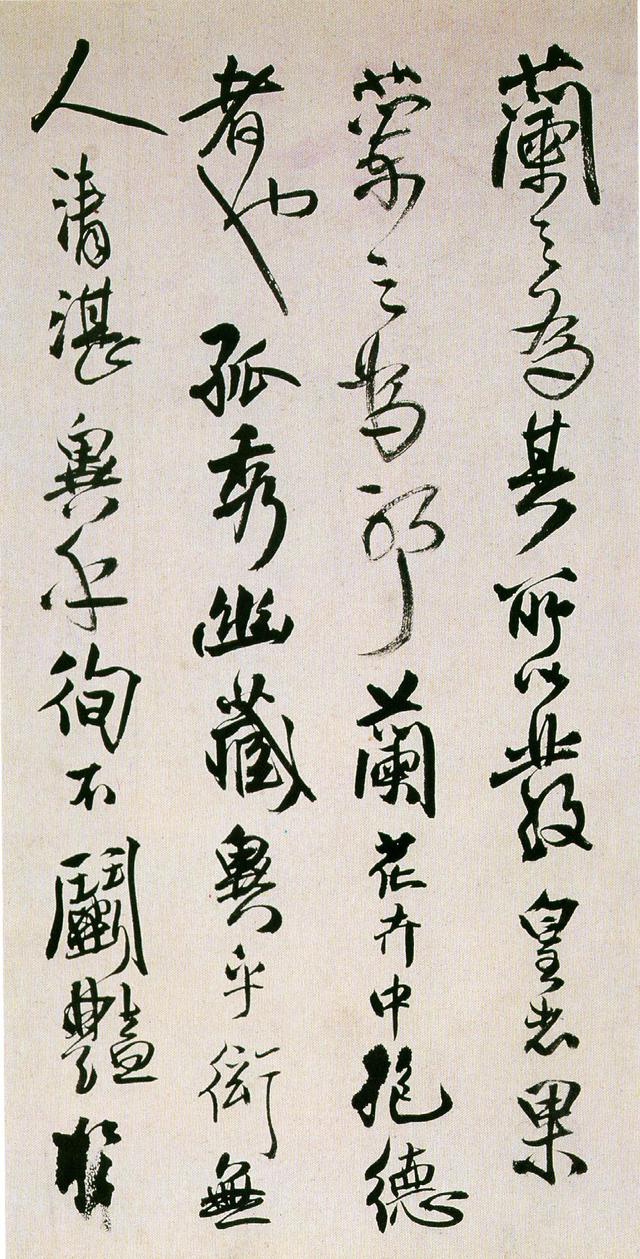 蘭之為其所以發皇者果
之為耶蘭花卉中抱德
者也孤秀幽藏異乎衒無
人清湛異乎徇不鬭艷